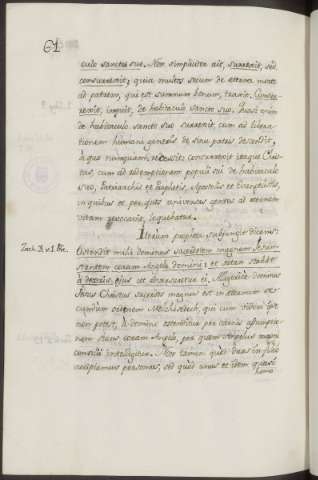 61
culo sancto suo. Non simpliciter ait, surrexit, sed
consurrexit; quia multos secum de æterna morte
ad patriam, qui est summum bonum, traxit. Consur-
rexit, inquit, de habitaculo sancto suo. Quasi enim
de habitaculo sancto suo surrexit, cum ad libera-
tionem humani generis de sinu patris descendit,
a quo nunquam recessit; consurrexit itaque Chris-
tus, cum ad redemptionem populi sui de habitaculo
suo, Patriarchis et Prophetis, Apostolis et Evangelistis,
in quibus et per quos universas gentes ad æternam
vitam provocavit, loquebatur.
Iterum propheta subjungit dicens:
Zach. 3. v. 1.
Ostendit mihi dominus sacerdotem magnum Jesum
stantem coram Angelo domini; et satan stabat
a dextris ejus ut adversaretur ei. Mystice dominus
Jesus Christus sacerdos magnus est in æternum se-
cundum ordinem Melchisedech, qui cum videri
non potest, a domino ostenditur per carnis assumptio-
nem stans coram Angelo, per quem Angelus magni
consilii intelligitur. Non tamen quod duas in filio
complectamur personas, sed quod unus et idem quasi
homo